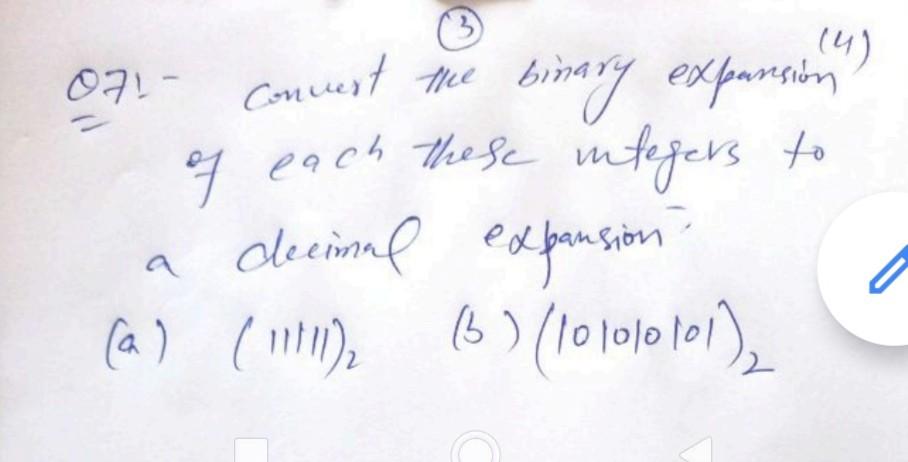 (3)
(4)
Q7:- Convert the binary expansion
of each these integers to
a decimal expansion.
(a) (11111)₂ (b) (101010101)₂